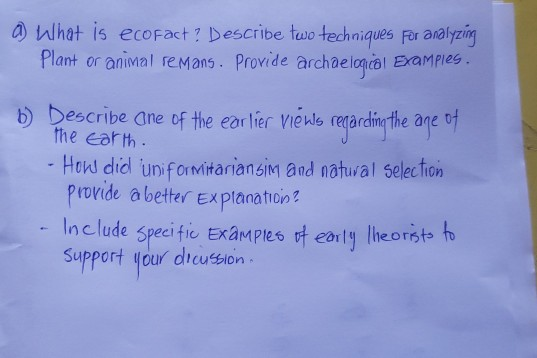 a) What is ecofact? Describe two techniques for analyzing
Plant or animal remans. Provide archaelogical Examples.
b) Describe one of the earlier views regarding the age of
the earth.
- How did uniformitariansim and natural selection
provide a better Explanation?
- Include specific Examples of early theorists to
support your dicussion.